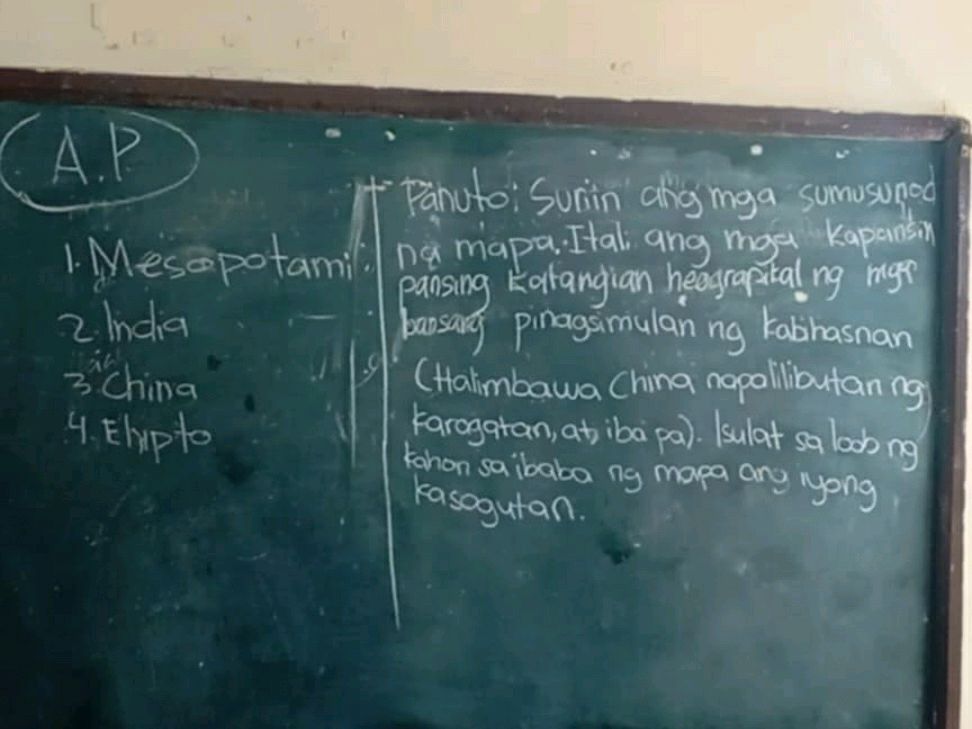 A.P
1. Mesopotami
2. India
3. China
4. Ehipto
Panuto: Suriin ang mga sumusunod
na mapa. Itali ang mga kapansin
pansing katangian heograpikal ng mga
bansang pinagsimulan ng kabihasnan
(Halimbawa China napalilibutan ng
karagatan, at iba pa). Isulat sa loob ng
kahon sa ibaba ng mapa ang iyong
kasogutan.